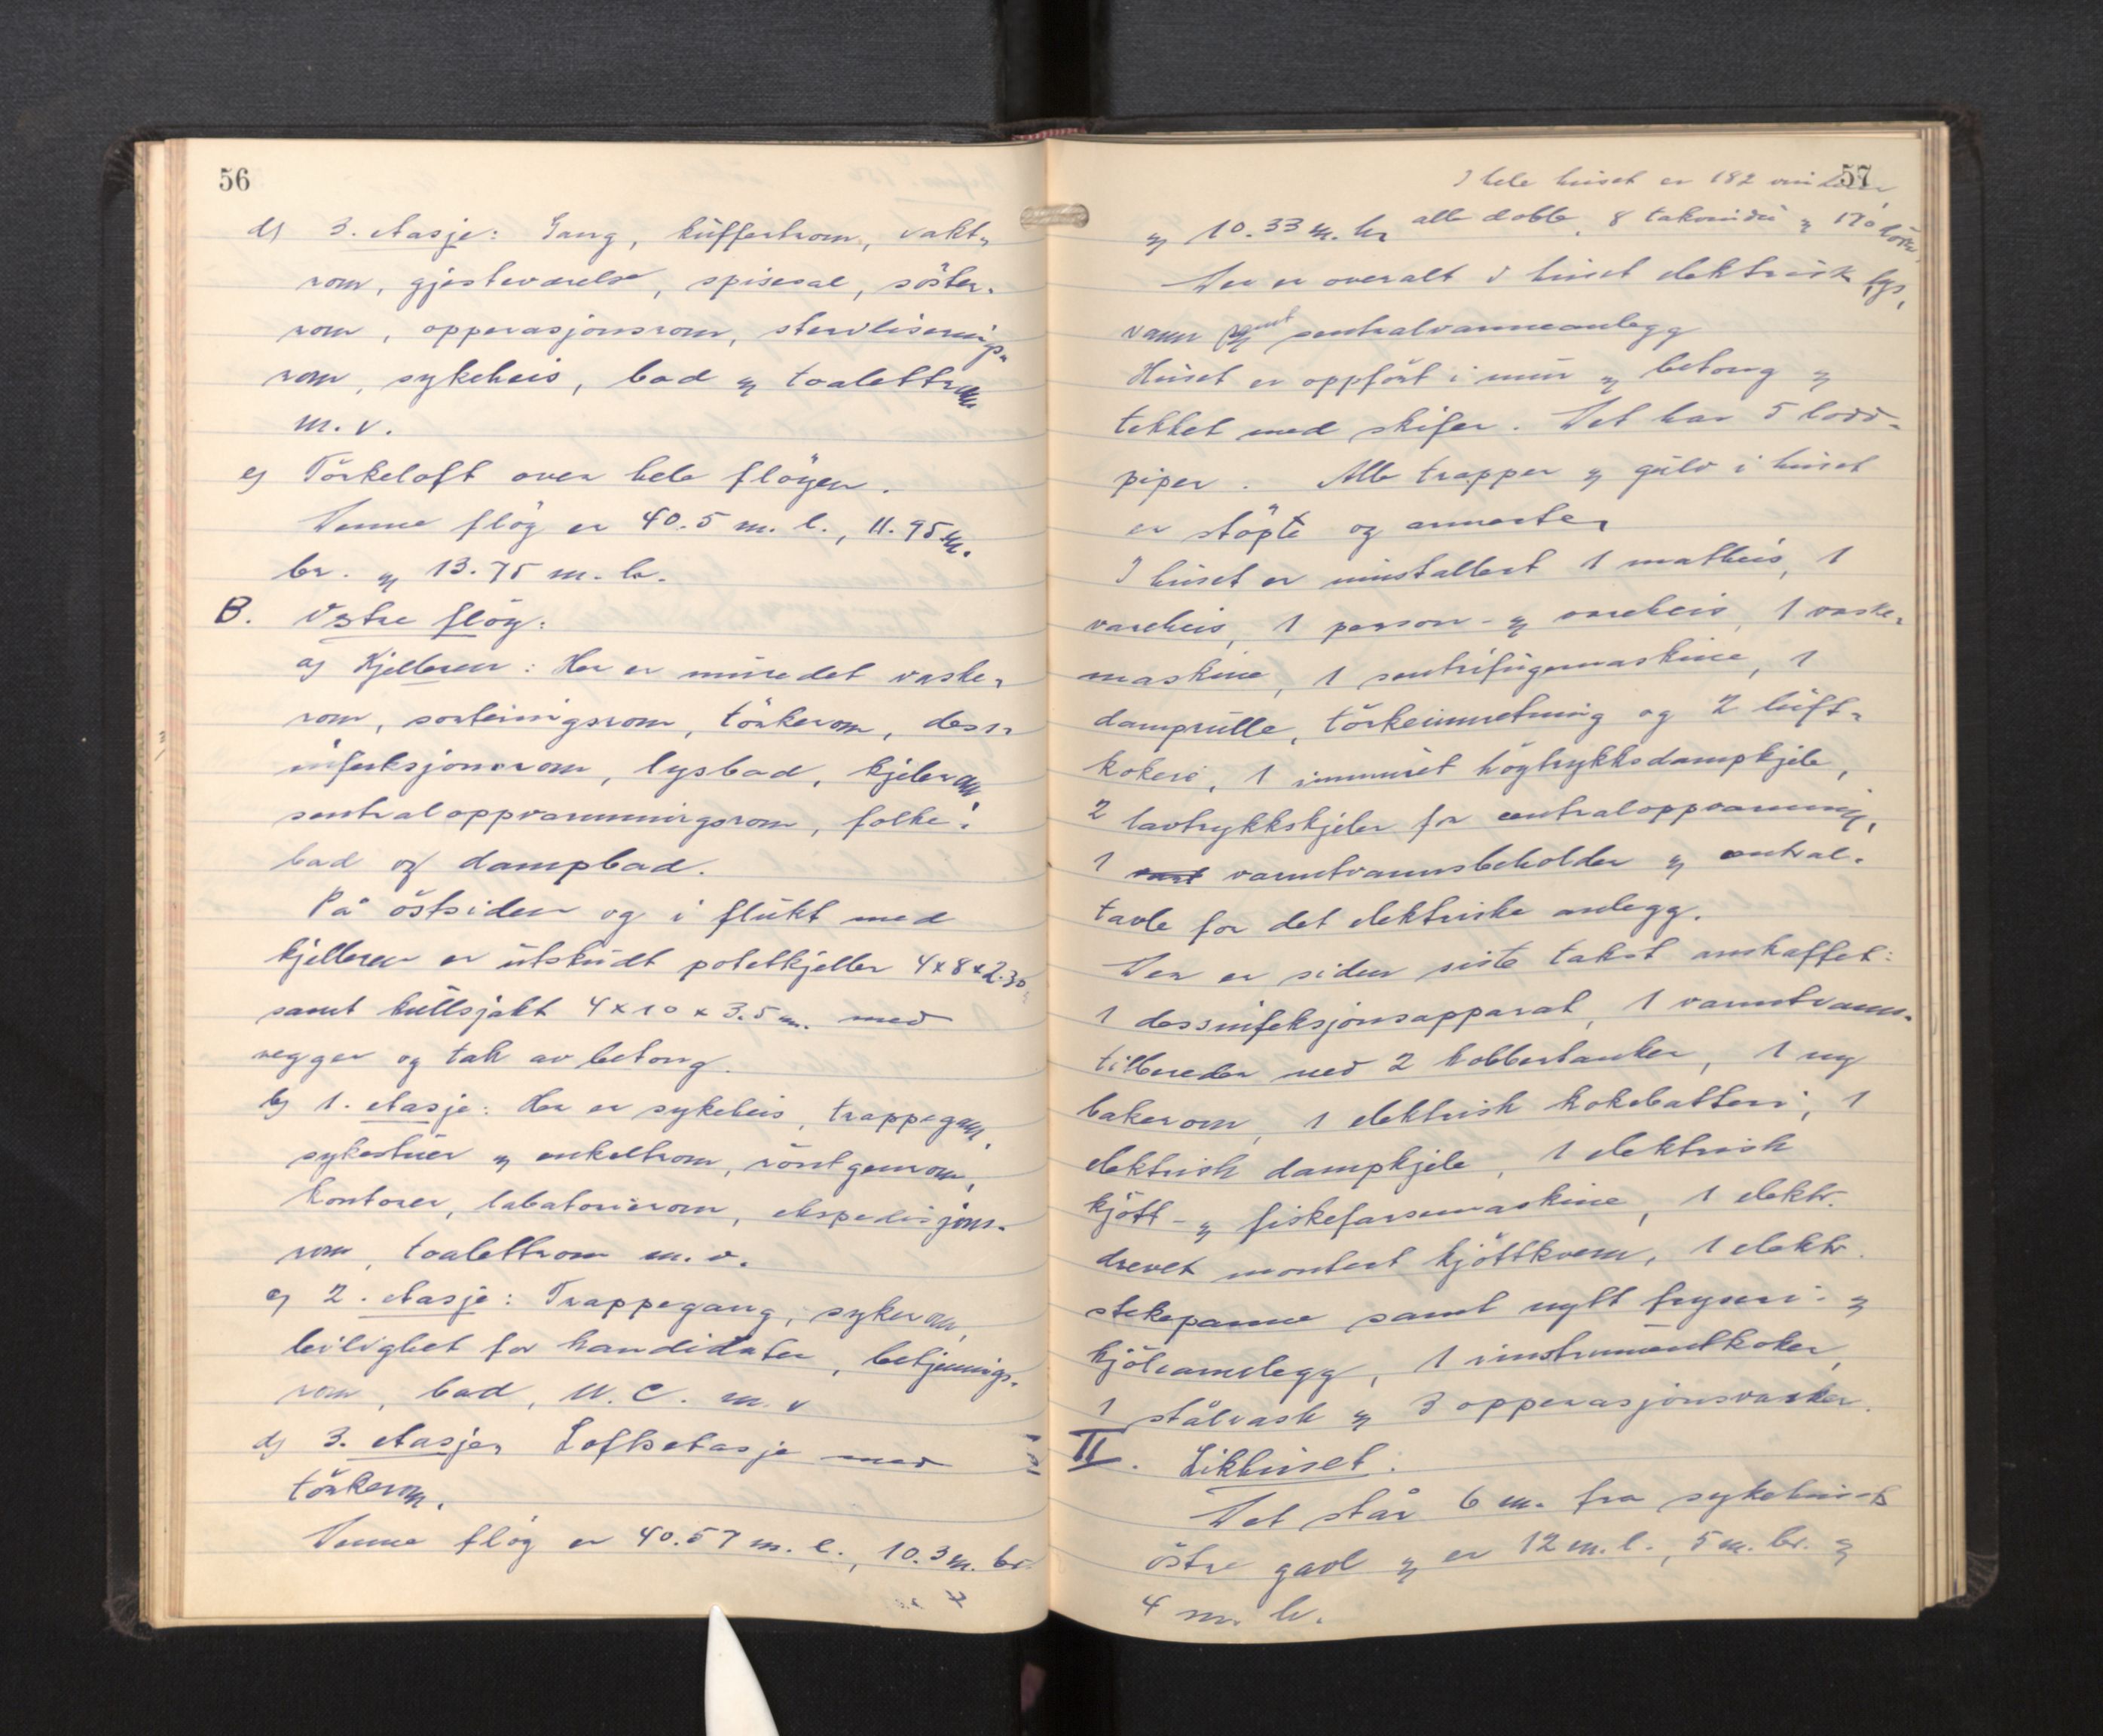 56
d) 3. etasje: Gang, kuffertrom, vakt-
rom, gjesteværelse, spisesal, söster-
rom, opperasjonsrom, steriliserings-
rom, sykeheis, bad og toalettrom
m. v.
e) Törkeloft over hele flöyen.
Denne flöy er 40.5 m. l., 11.95 m.
br. og 13.75 m. h.
B. Östre flöy:
a) Kjelleren: Her er muredet vaske-
rom, sorteringsrom, törkerom, dess-
infeksjonsrom, lysbad, kjelerom
sentraloppvarmningsrom, folke-
bad og dampbad.
På östsiden og i flukt med
kjelleren er utskudt potetkjeller 4x8x2.30,
samt kullsjakt 4x10x3.5 m. med
vegger og tak av betong.
b) 1. etasje: Her er sykeheis, trappegang,
sykestuer og enkeltrom, röntgenrom,
kontorer, labatorierom, ekspedisjons-
rom, toalettrom m. v.
c) 2. etasje: Trappegang, sykerom,
leilighet for kandidater, betjenings-
rom, bad, W. C. m. v
d) 3. etasje, Loftsetasje med
törkerom.
Denne flöy er 40.57 m. l., 10.3 m. br.
57
I hele huset er 182 vinduer,
og 10.33 m. h. alle doble, 8 takvindu og 170 dörer,
Der er overalt i huset elektrisk lys,
vann samt sentralvarmeanlegg
Huset er oppfört i mur og betong og
tekket med skifer. Det har 5 lodd-
piper. Alle trapper og gulv i huset
er stöpte og armerte,
I huset er innstallert 1 matheis, 1
vareheis, 1 person- og vareheis, 1 vaske-
maskine, 1 sentrifugemaskine, 1
damprulle, törkeinnretning og 2 luft-
kokeri, 1 innmuret höytrykksdampkjele,
2 lavtrykkskjeler for centraloppvarming,
1 varmtvannsbeholder og central-
tavle for det elektriske anlegg.
Der er siden siste takst anskaffet:
1 dessinfeksjonsapparat, 1 varmtvanns-
tilbereder med 2 kobbertanker, 1 ny
bakerovn, 1 elektrisk kokebatteri, 1
elektrisk dampkjele, 1 elektrisk
kjött- og fiskefarsemaskine, 1 elektr.
drevet montert kjöttkvern, 1 elektr.
stekepanne samt nytt fryseri- og
kjöleanlegg, 1 instrumentkoker,
1 stålvask og 3 opperasjonsvasker.
II. Likhuset.
Det står 6 m. fra sykehusets
östre gavl og er 12 m. l., 5 m. br. og
4 m. h.